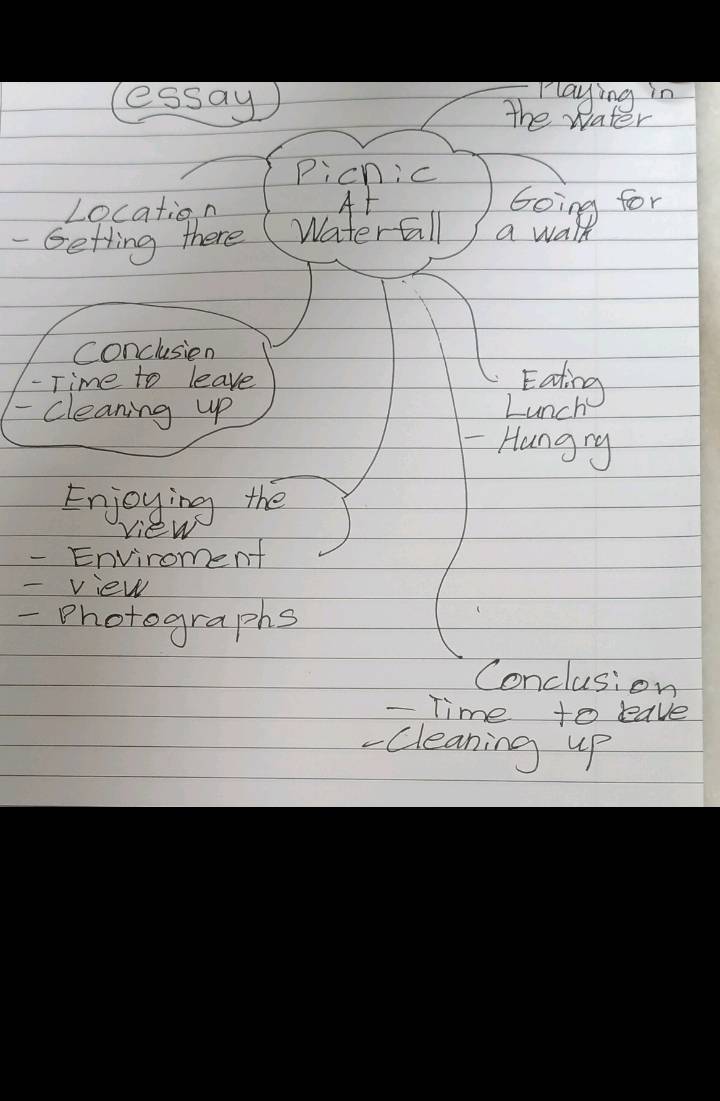 essay
Playing in
the Water
Picnic
At
Waterfall
Location
- Getting there
Going for
a walk
Conclusion
- Time to leave
- Cleaning up
Eating
Lunch
- Hungry
Enjoying the
view
- Enviroment
- view
- Photographs
Conclusion
- Time to leave
- Cleaning up